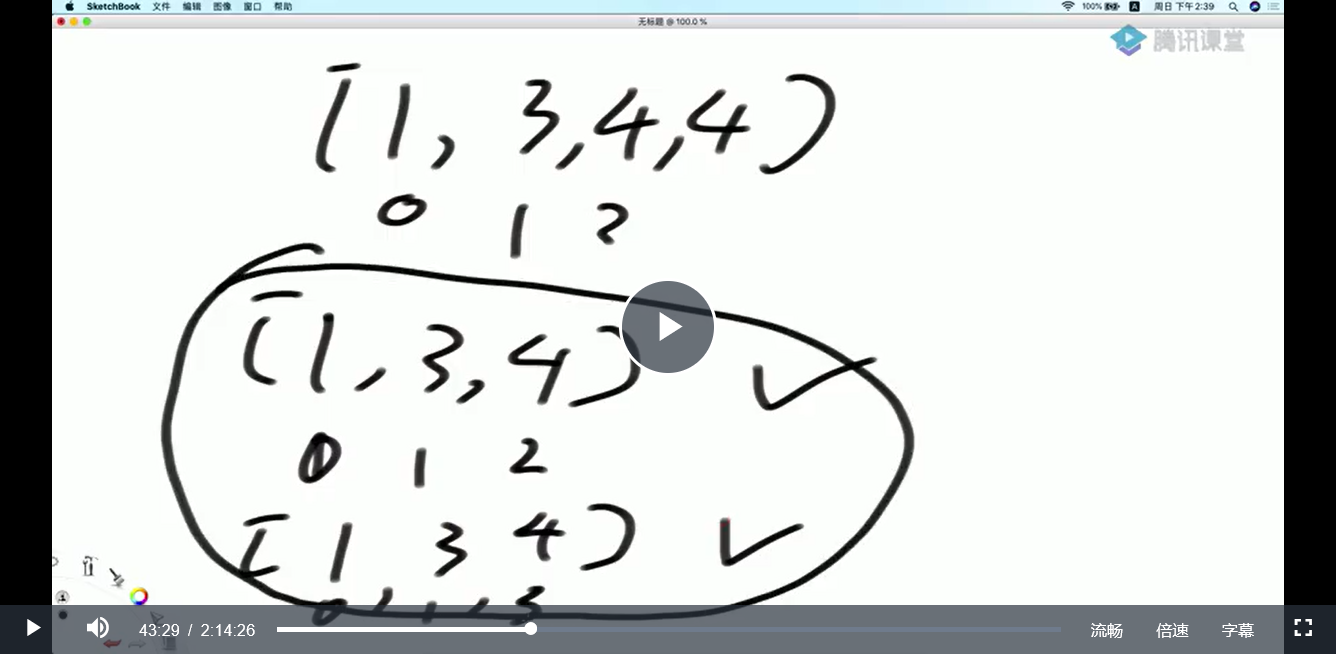 SketchBook 文件 编辑 图像 窗口 帮助 100% A 周日 下午2:39
无标题 @ 100.0 %
腾讯课堂
[1, 3,4,4)
0 1 2
[1,3,4) ✓
0 1 2
[1 3 4) ✓
0, 1, 3
43:29 / 2:14:26 流畅 倍速 字幕